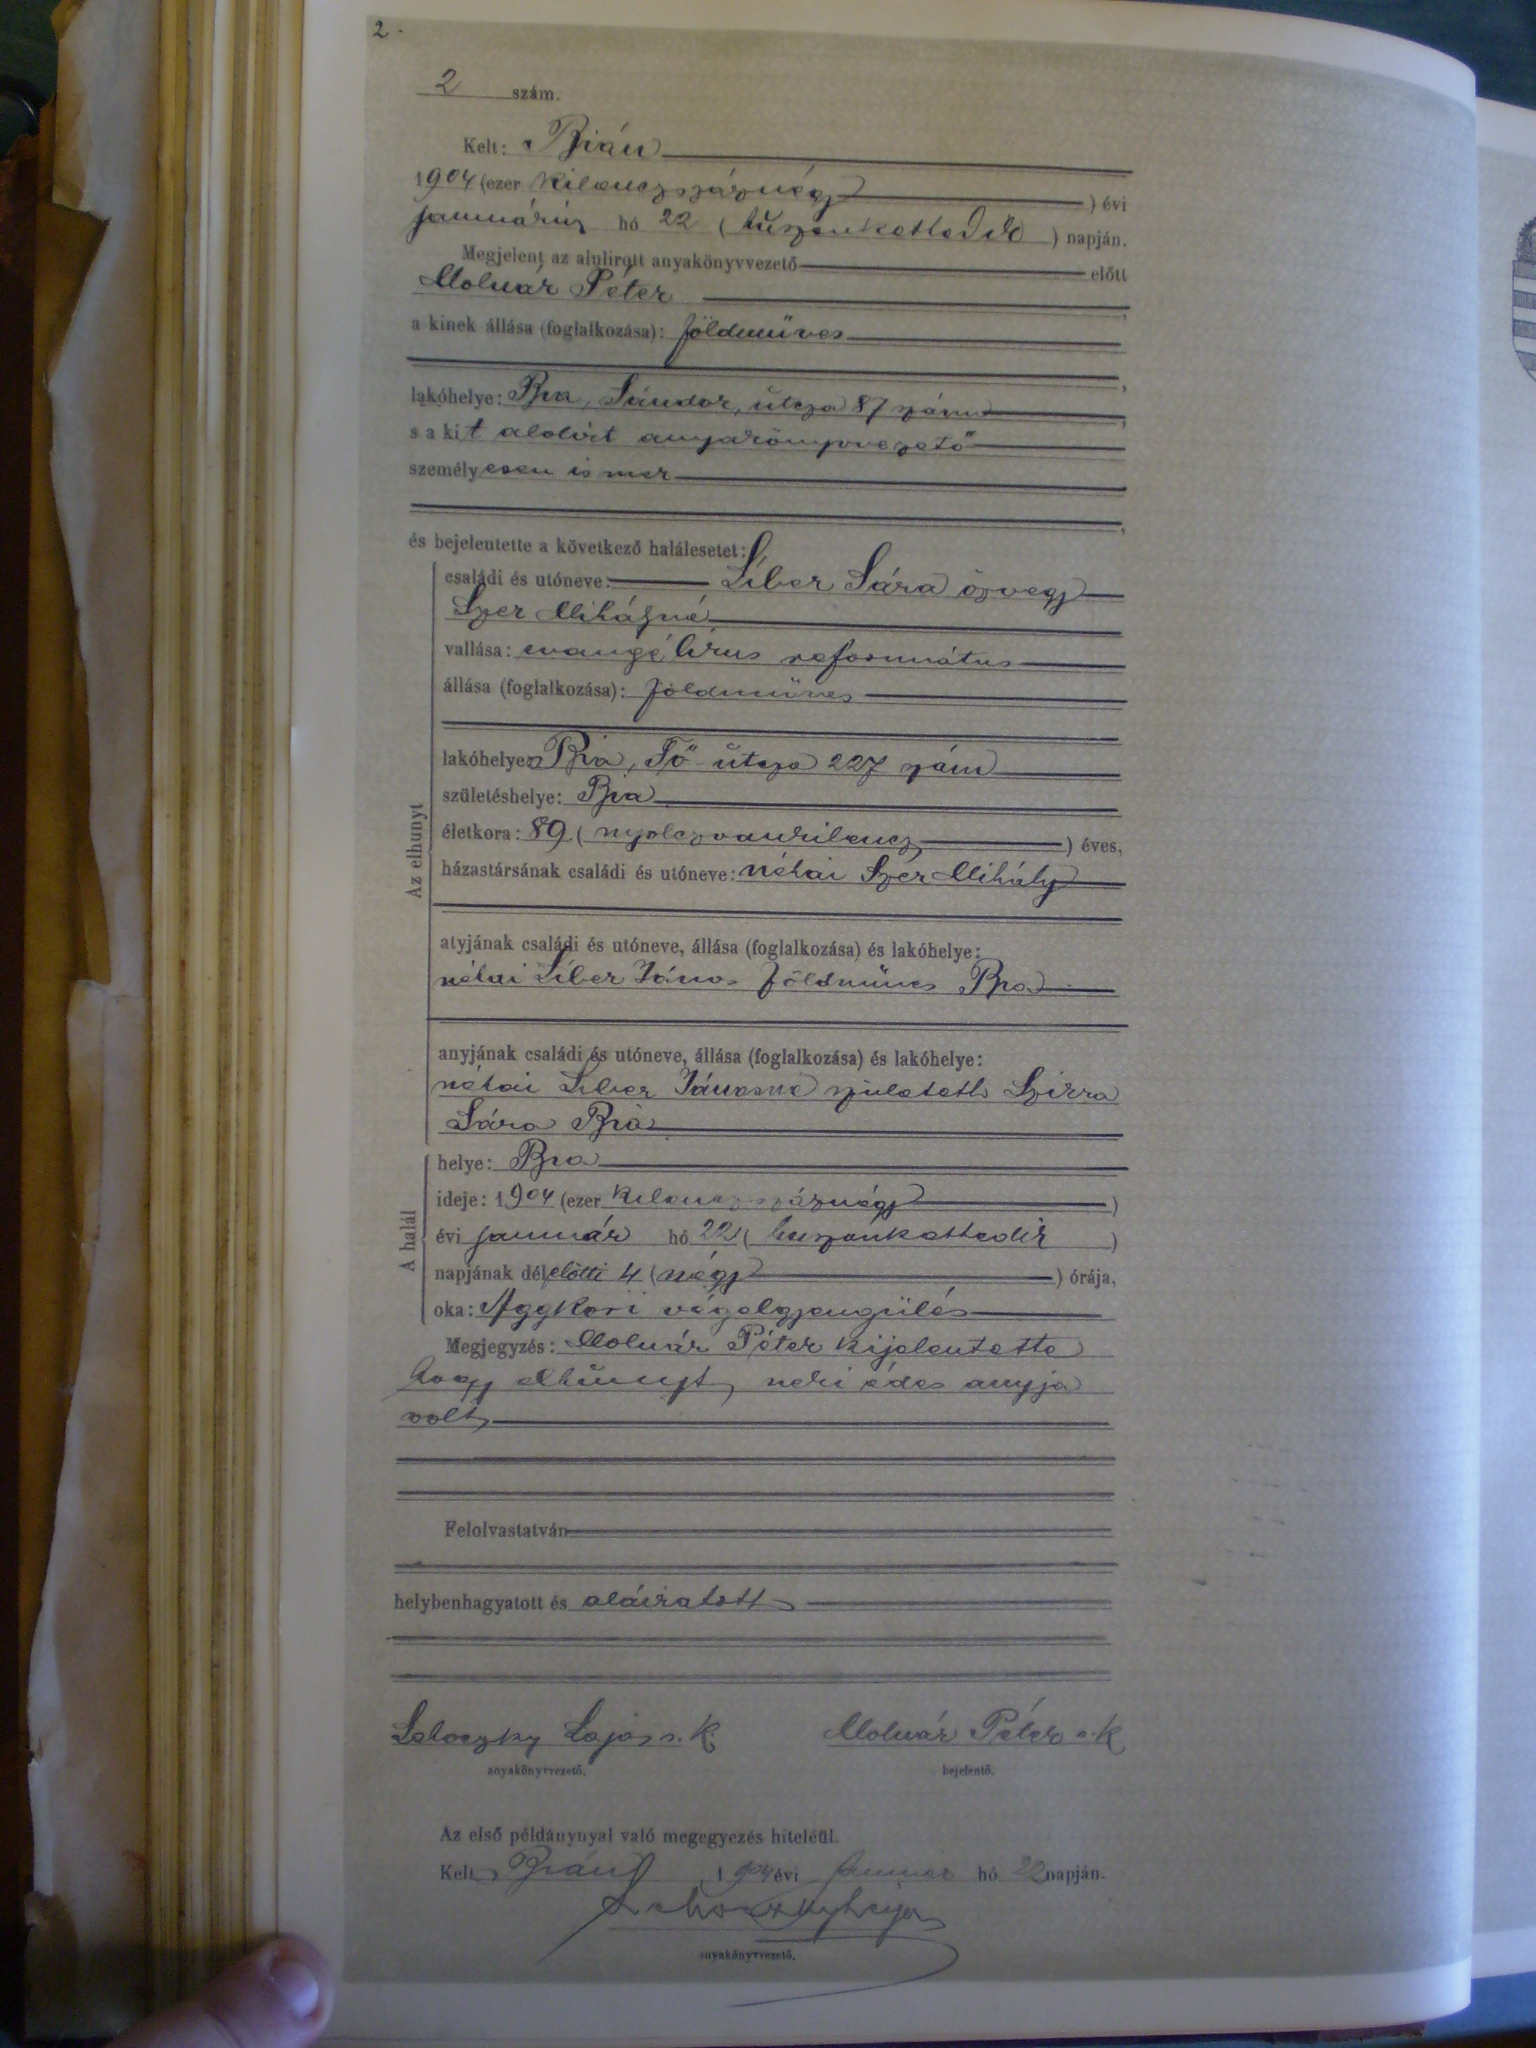 2.
2 szám.
Kelt: Bián
1904 (ezer kilenczszáznégy ) évi
januárius hó 22 (huszonkettedik ) napján.
Megjelent az alulirott anyakönyvvezető előtt
Molnár Péter
a kinek állása (foglalkozása): földmüves
lakóhelye: Bia, Sándor, útcza 87 szám
s a kit alolírt anyakönyvvezető
személyesen is mer
és bejelentette a következő halálesetet:
családi és utóneve: Líber Sára özvegy
Szer Mihályné
vallása: evangélikus református
állása (foglalkozása): földmüves
lakóhelye: Bia, Fő útcza 227 szám
születéshelye: Bia
életkora: 89 (nyolczvankilencz ) éves,
házastársának családi és utóneve: néhai Szér Mihály
Az elhunyt
atyjának családi és utóneve, állása (foglalkozása) és lakóhelye:
néhai Líber János földmüves Bia
anyjának családi és utóneve, állása (foglalkozása) és lakóhelye:
néhai Líber Jánosné született
Sára Bia
helye: Bia
ideje: 1904 (ezer kilenczszáznégy )
évi január hó 22 (huszonkettedik )
A halál
napjának délelőtti 4 (négy ) órája,
oka: Aggkori végelgyengülés
Megjegyzés: Molnár Péter kijelentette
hogy elhúnyt, neki édes anyja
volt,
Felolvastatván
helybenhagyatott és aláiratott
Lajos s. k. Molnár Péter s. k.
anyakönyvvezető. bejelentő.
Az első példánynyal való megegyezés hiteléül.
Kelt Bián 1904 évi január hó 22 napján.
anyakönyvvezető.